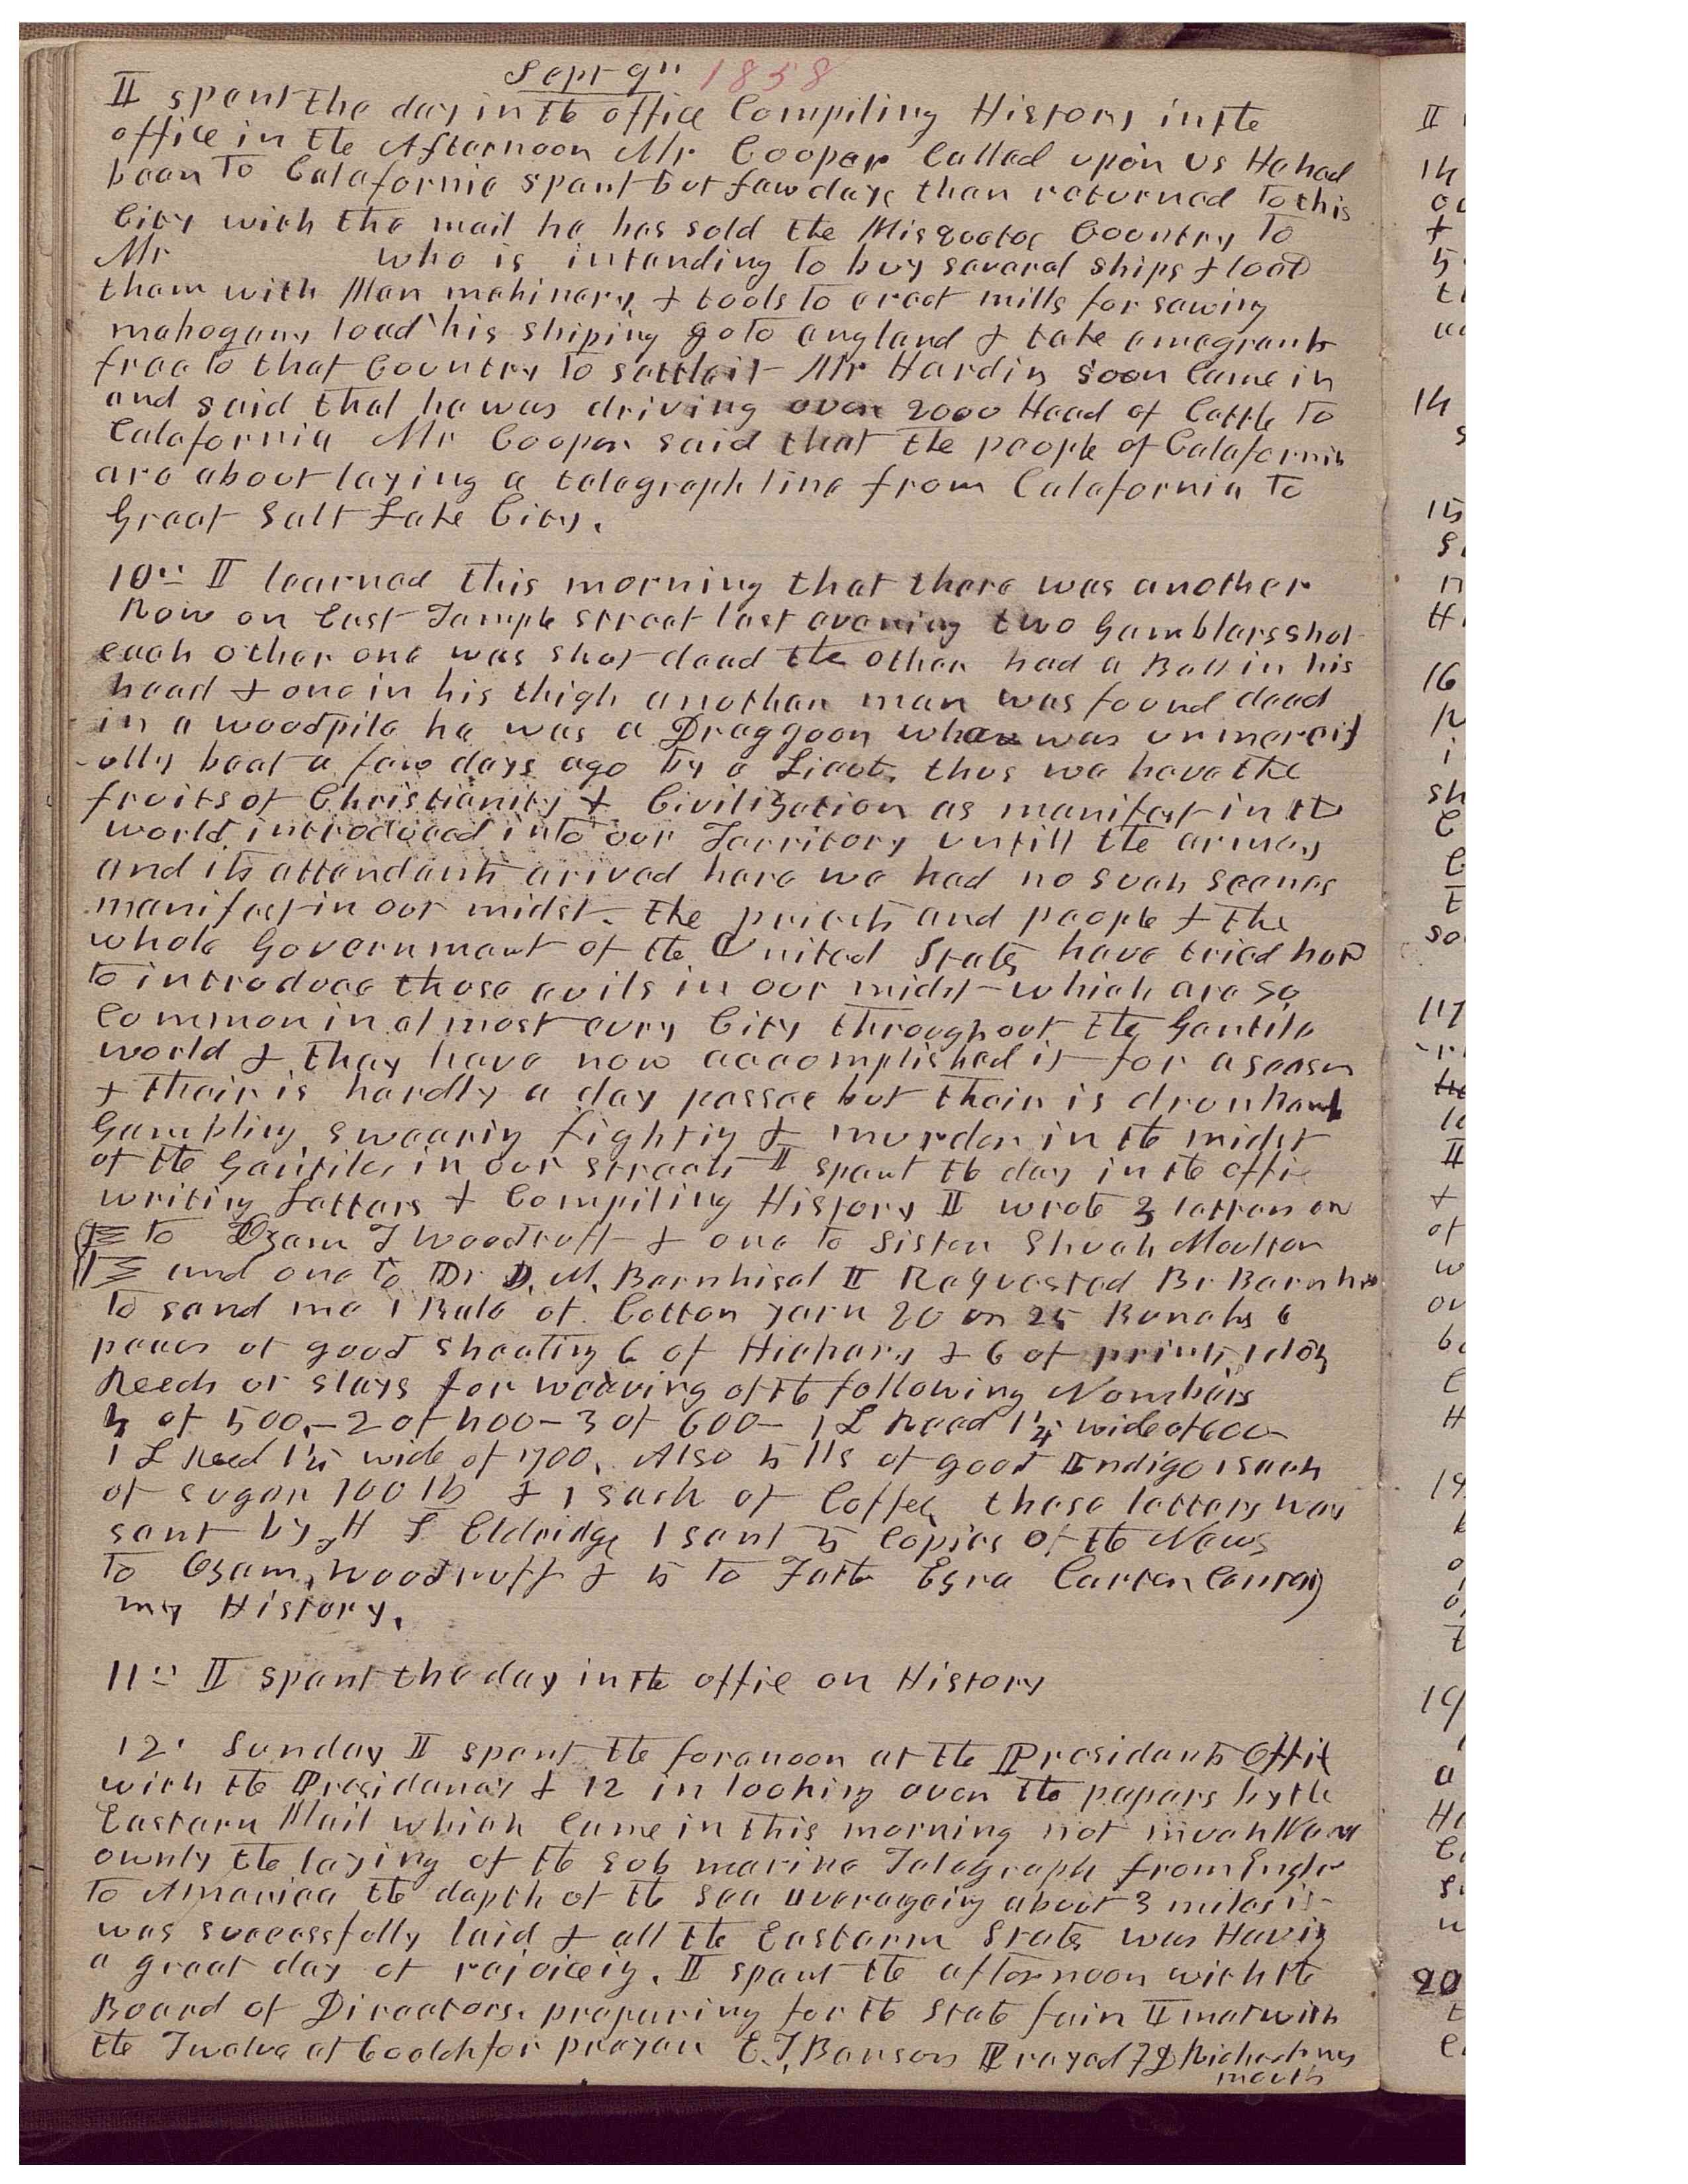 Sept 9" 1858
I spent the day in the office Compiling History in the
office in the Afternoon Mr Cooper Called upon us He had
been to Calafornia spent but few days then returned to this
City with the mail he has sold the Misquetoe Country to
Mr who is intending to buy several ships & load
them with Men mahinery & tools to erect mills for sawing
mahogany load his shiping go to england & take emegrants
free to that Country to settle it Mr Hardin soon Came in
and said that he was driving over 2000 Head of Cattle to
Calafornia Mr Cooper said that the people of Calafornia
are about laying a telegraph line from Calafornia to
Great Salt Lake City.
10" I learned this morning that there was another
Row on East Temple street last evening two Gamblers shot
each other one was shot dead the other had a Ball in his
head & one in his thigh another man was found dead
in a woodpile he was a Draggoon who was unmercif
-ully beat a few days ago by a Lieut. thus we have the
fruits of Christianity & Civilization as manifest in the
world introduced into our Territory untill the army
and its attendants arived here we had no such scenes
manifest in our midst. the priests and people & the
whole Government of the United States have tried hard
to introduce those evils in our midst which are so
common in almost evry City throughout the Gentile
world & they have now accomplished it for a season
& their is hardly a day passes but their is drunkards
Gambling swearing fighting & murder in the midst
of the Gentiles in our streets I spent the day in the offie
writing Letters & Compiling History I wrote 3 letters one
to Ozem T Woodruff & one to Sister Shuah Moulton
and one to Dr J. M. Bernhisel I Requested Br Bernhisel
to send me 1 Bale of Cotton yarn 20 or 25 Bunches 6
peces of good sheeting 6 of Hickory & 6 of prints, 1 doz
Reeds or slays for weaving of the following Numbers
4 of 500,- 2 of 400- 3 of 600- 1 L Reed 1¼ wide of 600-
1 L Reed 1¼ wide of 700. Also 5 lbs of good Indigo 1 sack
of sugar 100 lb & 1 sack of Coffee, these letters was
sent by H S Eldridge I sent 5 Copies of the News
to Ozem, Woodruff & 5 to Father Ezra Carter Containg
my History.
11" I spent the day in the offie on History
12" Sunday I spent the forenoon at the Presidents Offie
with the Presidency & 12 in looking over the papers by the
Eastern Mail which Came in this morning not much News
ownly the laying of the sub marine Telegraph from Engla
to America the depth of the sea averageing about 3 miles it
was successfully laid & all the Eastern States was Having
a great day of rejoiceing. I spent the afternoon with the
Board of Directors. preparing for the State fair I met with
the Twelve at 6 oclok for prayer E. T, Benson Prayed F D Richards was
mouth
II
14
&
14
15
16
17
II
&
of
19
20